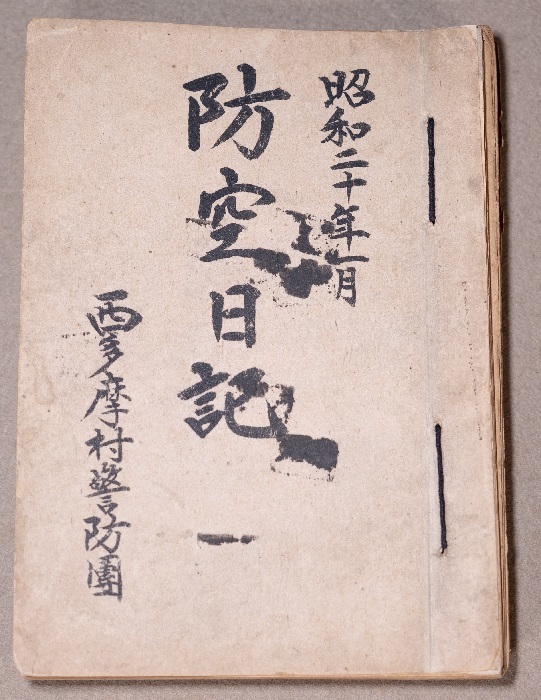 昭和二十年一月
防空日記
一
西多摩村警防團